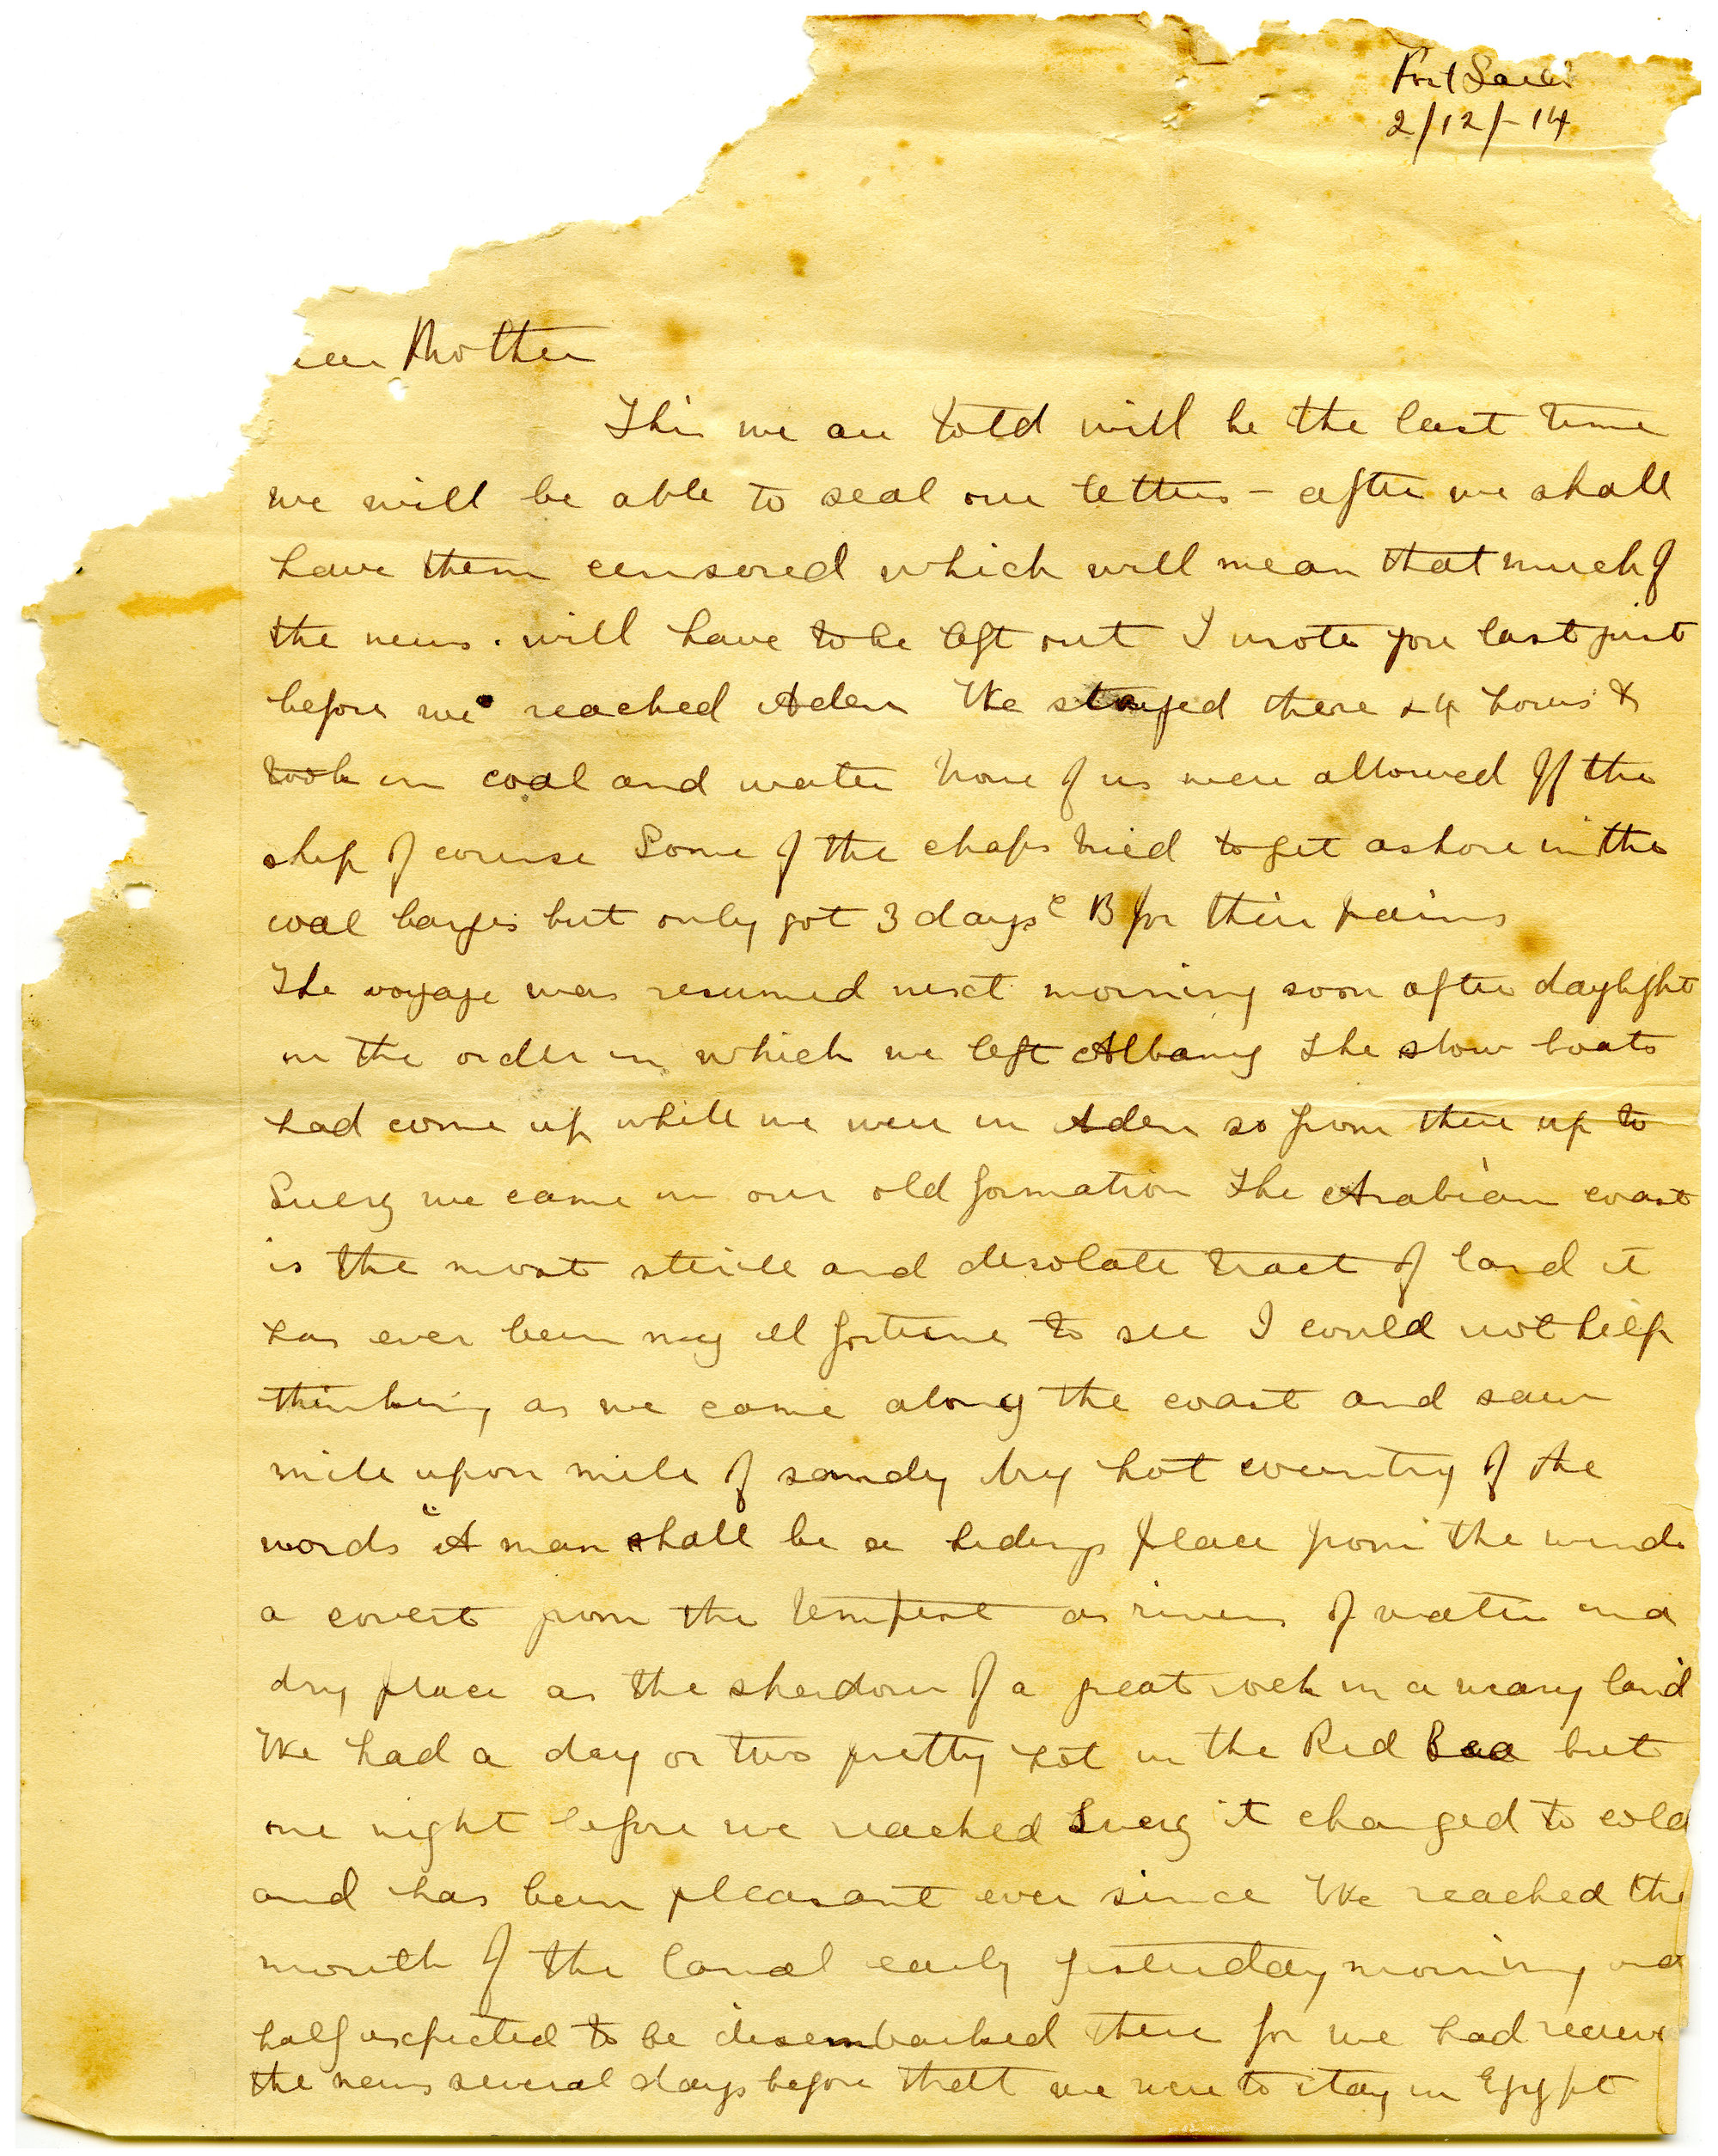 Port Said
2/12/-14
ear Mother
This we are told will be the last time
we will be able to seal our letters - after we shall
have them censored which will mean that much of
the news. will have to be left out I wrote you last just
before we reached Aden We stayed there 24 hours &
took in coal and water None of us were allowed off the
ship of course Some of the chaps tried to get ashore in the
coal barges but only got 3 days C B for their pains
The voyage was resumed next morning soon after daylight
in the order in which we left Albany The slow boats
had come up while we were in Aden so from there up to
Suez we came in our old formation The Arabian coast
is the most sterile and desolate tract of land it
has ever been my ill fortune to see I could not help
thinking as we came along the coast and saw
mile upon mile of sandy dry hot country of the
words "A man shall be a hiding place from the wind
a covert from the tempest as rivers of water in a
dry place as the shadow of a great rock in a weary land
We had a day or two pretty hot in the Red Sea but
one night before we reached Suez it changed to cold
and has been pleasant ever since We reached the
mouth of the Canal early yesterday morning and
half expected to be disembarked there for we had receive
the news several days before that we were to stay in Egypt